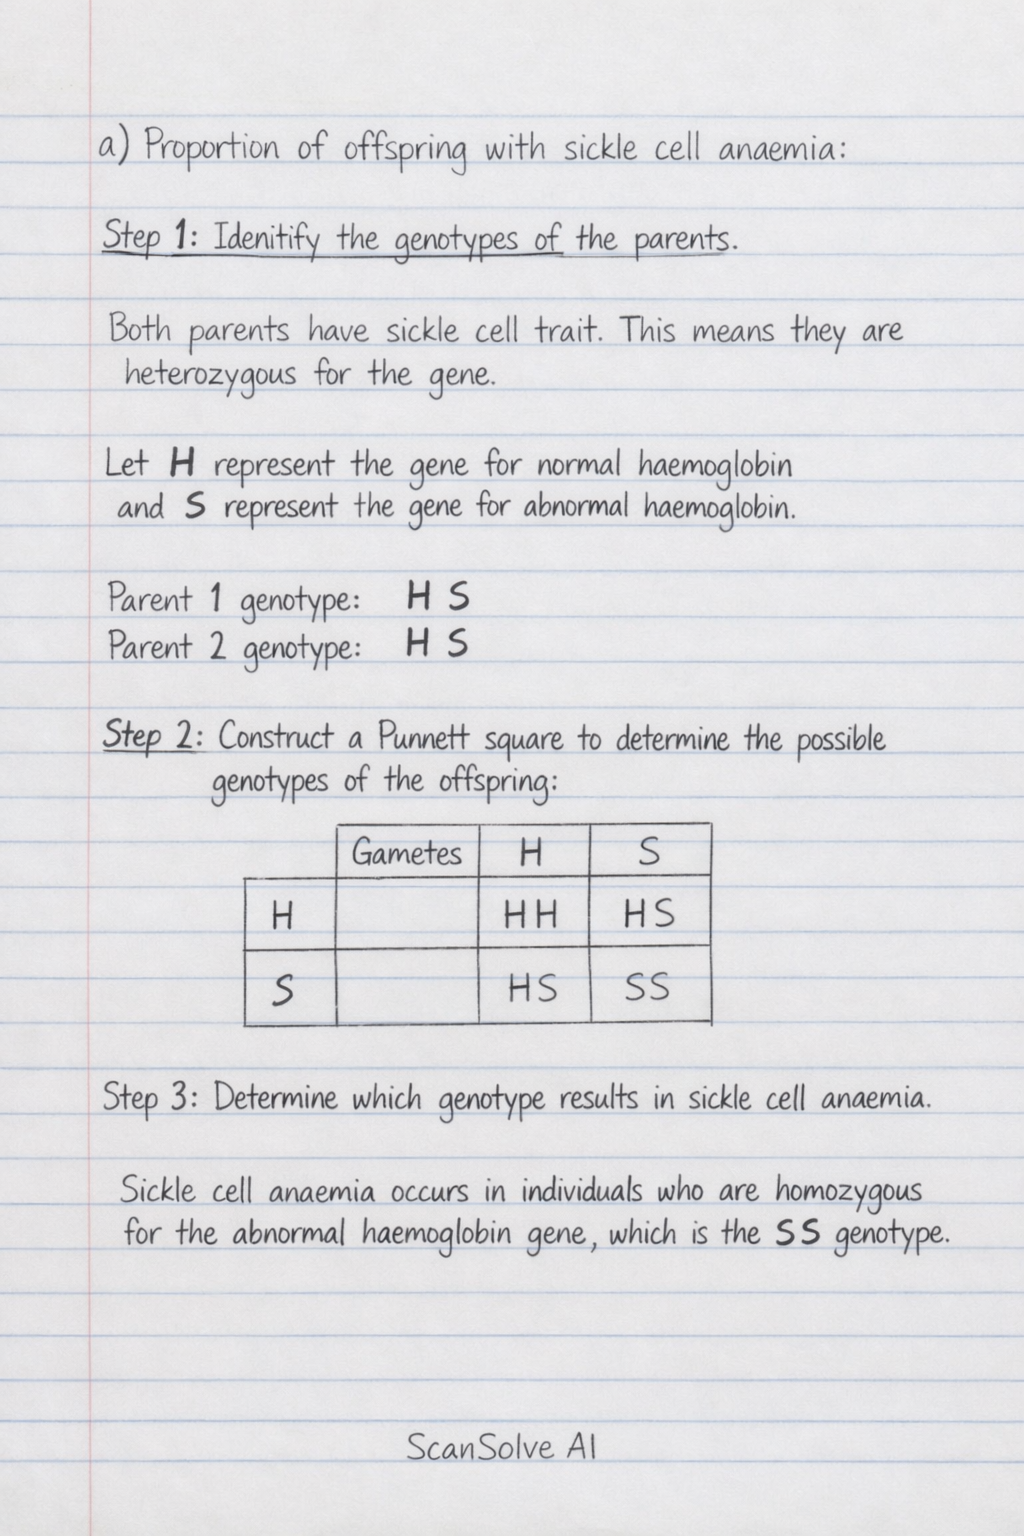 a) Proportion of offspring with sickle cell anaemia:
Step 1: Idenitify the genotypes of the parents.
Both parents have sickle cell trait. This means they are
heterozygous for the gene.
Let H represent the gene for normal haemoglobin
and S represent the gene for abnormal haemoglobin.
Parent 1 genotype: H S
Parent 2 genotype: H S
Step 2: Construct a Punnett square to determine the possible
genotypes of the offspring:
Gametes H S
H HH HS
S HS SS
Step 3: Determine which genotype results in sickle cell anaemia.
Sickle cell anaemia occurs in individuals who are homozygous
for the abnormal haemoglobin gene, which is the SS genotype.
ScanSolve AI